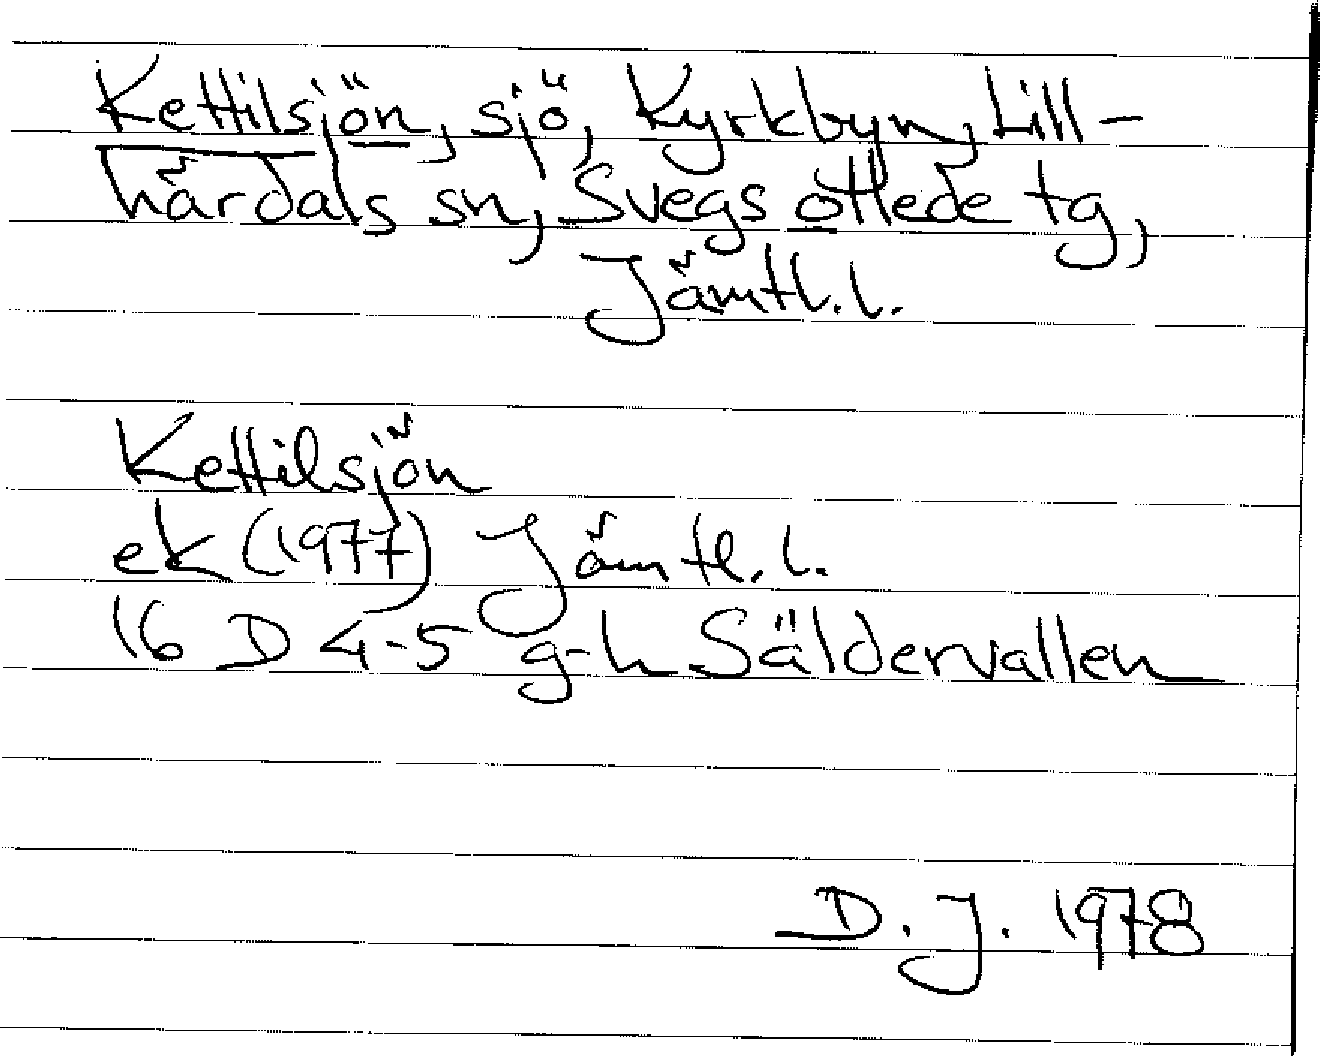 Kettilsjön, sjö, Kyrkbyn, Lill-
härdals sn, Svegs ottede tg,
Jämtl. l.
Kettilsjön
ek (1977) Jämtl. l.
16 D 4-5 g-h Säldervallen
D. J. 1978